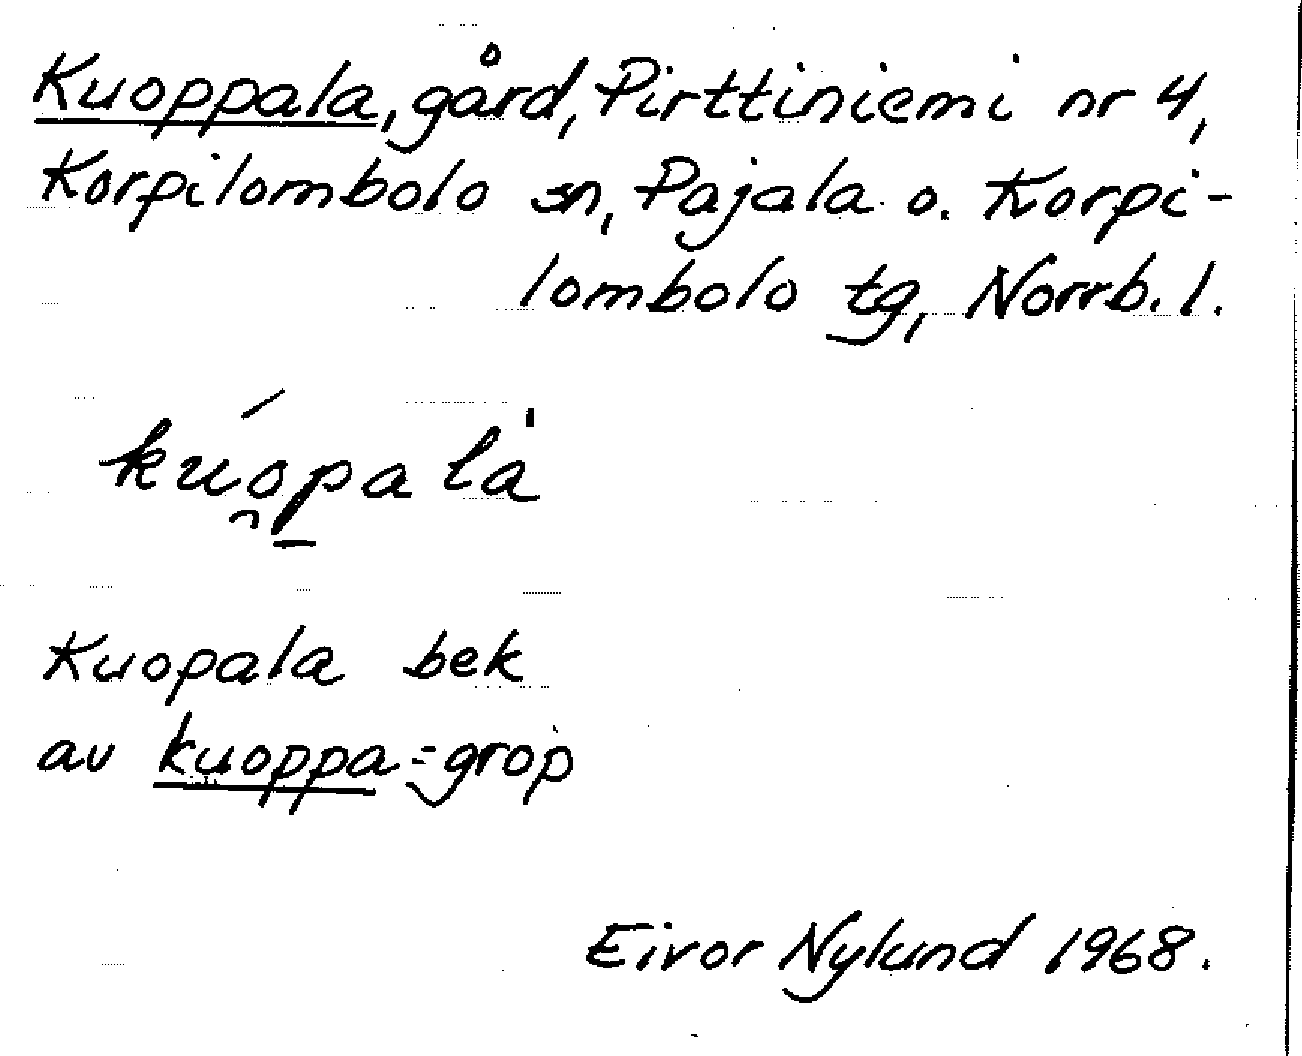 Kuoppala, gård, Pirttiniemi nr 4,
Korpilombolo sn, Pajala o. Korpi-
lombolo tg, Norrb. l.
kúo̯p̲alà
Kuopala bek
av kuoppa = grop
Eivor Nylund 1968.